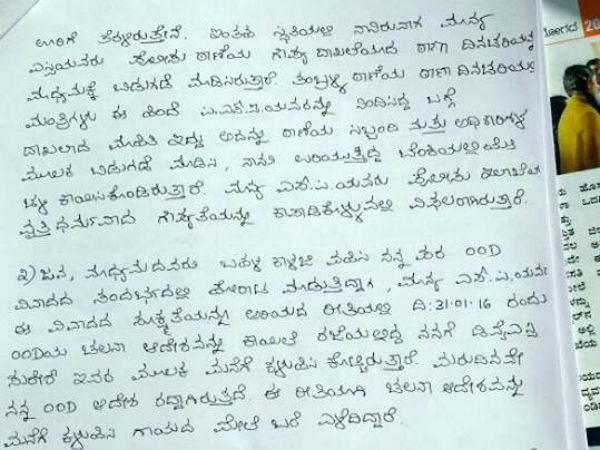 ಊರಿಗೆ ತೆರಳಿರುತ್ತೇನೆ. ಇಂತಹ ಸ್ಥಿತಿಯಲ್ಲಿ ನಾನಿರುವಾಗ ಮಾನ್ಯ
ಎಸ್ಪಿಯವರು ಪೋಲೀಸು ಠಾಣೆಯ ಗೌಪ್ಯ ದಾಖಲೆಯಾದ ಠಾಣಾ ದಿನಚರಿಯನ್ನು
ಮಾಧ್ಯಮಕ್ಕೆ ಬಿಡುಗಡೆ ಮಾಡಿಸಿರುತ್ತಾರೆ. ಠಾಣೆಯ ಠಾಣಾ ದಿನಚರಿಯಲ್ಲಿ
ಮಂತ್ರಿಗಳು ಈ ಹಿಂದೆ ಪಿ.ಎಸ್.ಐ.ಯವರನ್ನು ನಿಂದಿಸಿದ್ದ ಬಗ್ಗೆ
ದಾಖಲಾದ ಮಾಹಿತಿ ಇದ್ದು ಅದನ್ನು ಠಾಣೆಯ ಸಿಬ್ಬಂದಿ ಮತ್ತು ಅಧಿಕಾರಿಗಳ
ಮೂಲಕ ಬಿಡುಗಡೆ ಮಾಡಿಸಿ, ನಾನು ಉರಿಯುತ್ತಿದ್ದ ಬೆಂಕಿಯಲ್ಲಿ ಮೈ
ಚಳಿ ಕಾಯಿಸಿಕೊಂಡಿರುತ್ತಾರೆ. ಮಾನ್ಯ ಎಸ್.ಪಿ.ಯವರು ಪೋಲೀಸು ಇಲಾಖೆಯ
ವೃತ್ತಿ ಧರ್ಮವಾದ ಗೌಪ್ಯತೆಯನ್ನು ಕಾಪಾಡಿಕೊಳ್ಳುವಲ್ಲಿ ವಿಫಲರಾಗಿರುತ್ತಾರೆ.
೩) ಜನ, ಮಾಧ್ಯಮದವರು ಬಹಳ ಕಾಳಜಿ ವಹಿಸಿ ನನ್ನ ಪರ OOD
ವಿವಾದದ ಸಂದರ್ಭದಲ್ಲಿ ಹೋರಾಟ ಮಾಡುತ್ತಿದ್ದಾಗ, ಮಾನ್ಯ ಎಸ್.ಪಿ.ಯವರು
ಈ ವಿವಾದದ ಸೂಕ್ಷ್ಮತೆಯನ್ನು ಅರಿಯದ ರೀತಿಯಲ್ಲಿ ದಿ:31-01-16 ರಂದು
OODಯ ಚಲನಾ ಆದೇಶವನ್ನು ಕಾಯಿಲೆ ರಜೆಯಲ್ಲಿದ್ದ ನನಗೆ ಡಿವೈಎಸ್ಪಿ
ಇವರ ಮೂಲಕ ಮನೆಗೆ ಕಳುಹಿಸಿ ಕೊಟ್ಟಿರುತ್ತಾರೆ. ಮರುದಿನವೇ
ನನ್ನ OOD ಆದೇಶ ರದ್ದಾಗಿರುತ್ತದೆ. ಈ ರೀತಿಯಾಗಿ ಚಲನಾ ಆದೇಶವನ್ನು
ಮನೆಗೆ ಕಳುಹಿಸಿ ಗಾಯದ ಮೇಲೆ ಬರೆ ಎಳೆದಿದ್ದಾರೆ.